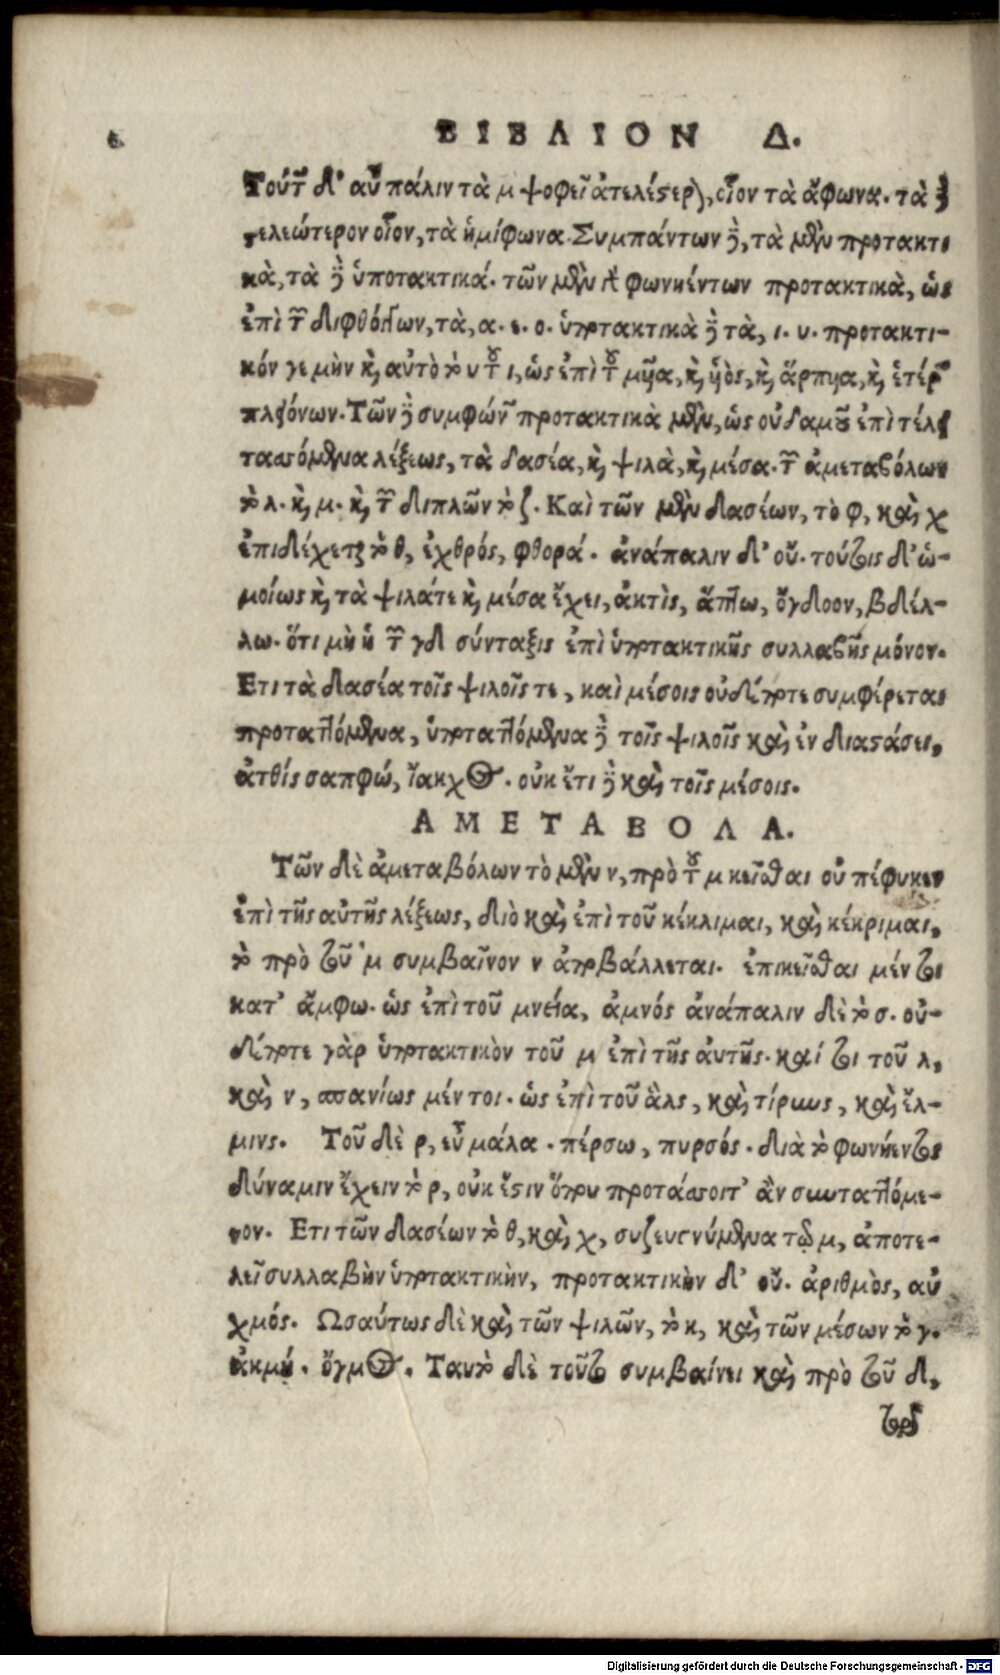 ΒΙΒΛΙΟΝ Δ.
Τούτων δ' αὖ πάλιν τὰ μ ψοφεῖ ἀτελέστερον, οἷον τὰ ἄφωνα. τὰ δὲ
τελεώτερον οἷον, τὰ ἡμίφωνα. Συμπάντων δὲ, τὰ μὲν προτακτι
κὰ, τὰ δὲ ὑποτακτικά. τῶν μὲν φωνηέντων προτακτικὰ, ὡς
ἐπὶ τῶν διφθόγγων, τὰ, α. ε. ο. ὑποτακτικὰ δὲ τὰ, ι. υ. προτακτι-
κόν γε μὴν καὶ αὐτὸ τὸ υ τοῦ ι, ὡς ἐπὶ τοῦ μῦα, καὶ ὑὸς, καὶ ἅρπυα, καὶ ἑτέρων
πλειόνων. Τῶν δὲ συμφώνων προτακτικὰ μὲν, ὡς οὐδαμοῦ ἐπὶ τέλει
τασσόμενα λέξεως, τὰ δασέα, καὶ ψιλὰ, καὶ μέσα. τῶν ἀμεταβόλων
τὸ λ. καὶ μ. καὶ τῶν διπλῶν τὸ ζ. Καὶ τῶν μὲν δασέων, τὸ φ, καὶ χ
ἐπιδέχεται τὸ θ, ἐχθρός, φθορά. ἀνάπαλιν δ' οὔ. τούτοις δ' ὁ-
μοίως καὶ τὰ ψιλάτε καὶ μέσα ἔχει, ἀκτὶς, ἅπτω, ὄγδοον, βδέλ-
λω. ὅτι μὴ ἡ τῶν γδ σύνταξις ἐπὶ ὑποτακτικῆς συλλαβῆς μόνον.
Ετι τὰ δασέα τοῖς ψιλοῖς τε, καὶ μέσοις οὐδέποτε συμφέρεται
προταττόμενα, ὑποταττόμενα δὲ τοῖς ψιλοῖς καὶ ἐν διαστάσει,
ἀτθίς σαπφώ, ἴακχος. οὐκ ἔτι δὲ καὶ τοῖς μέσοις.
ΑΜΕΤΑΒΟΛΑ.
Τῶν δὲ ἀμεταβόλων τὸ μὲν ν, πρὸ τοῦ μ κεῖσθαι οὐ πέφυκεν
ἐπὶ τῆς αὐτῆς λέξεως, διὸ καὶ ἐπὶ τοῦ κέκλιμαι, καὶ κέκριμαι,
τὸ πρὸ τοῦ μ συμβαῖνον ν ἀποβάλλεται. ἐπικεῖσθαι μέν τοι
κατ' ἄμφω. ὡς ἐπὶ τοῦ μνεία, ἀμνός ἀνάπαλιν δὲ τὸ σ. οὐ-
δέποτε γὰρ ὑποτακτικὸν τοῦ μ ἐπὶ τῆς αὐτῆς. καί τοι τοῦ λ,
καὶ ν, σπανίως μέν τοι. ὡς ἐπὶ τοῦ ἃλς, καὶ τίρυνς, καὶ ἕλ-
μινς. Τοῦ δὲ ρ, εὖ μάλα. πέρσω, πυρσός. διὰ τὸ φωνήεντος
δύναμιν ἔχειν τὸ ρ, οὐκ ἔστιν ὅπου προτάσσοιτ' ἂν συνταττόμε-
νον. Ετι τῶν δασέων τὸ θ, καὶ χ, συζευγνύμενα τῷ μ, ἀποτε-
λεῖ συλλαβὴν ὑποτακτικὴν, προτακτικὴν δ' οὔ. ἀριθμὸς, αὐ
χμός. Ωσαύτως δὲ καὶ τῶν ψιλῶν, τὸ κ, καὶ τῶν μέσων τὸ γ.
ἀκμή. ὄγμος. Ταυτὸ δὲ τοῦτο συμβαίνει καὶ πρὸ τοῦ δ,
Digitalisierung gefördert durch die Deutsche Forschungsgemeinschaft - DFG